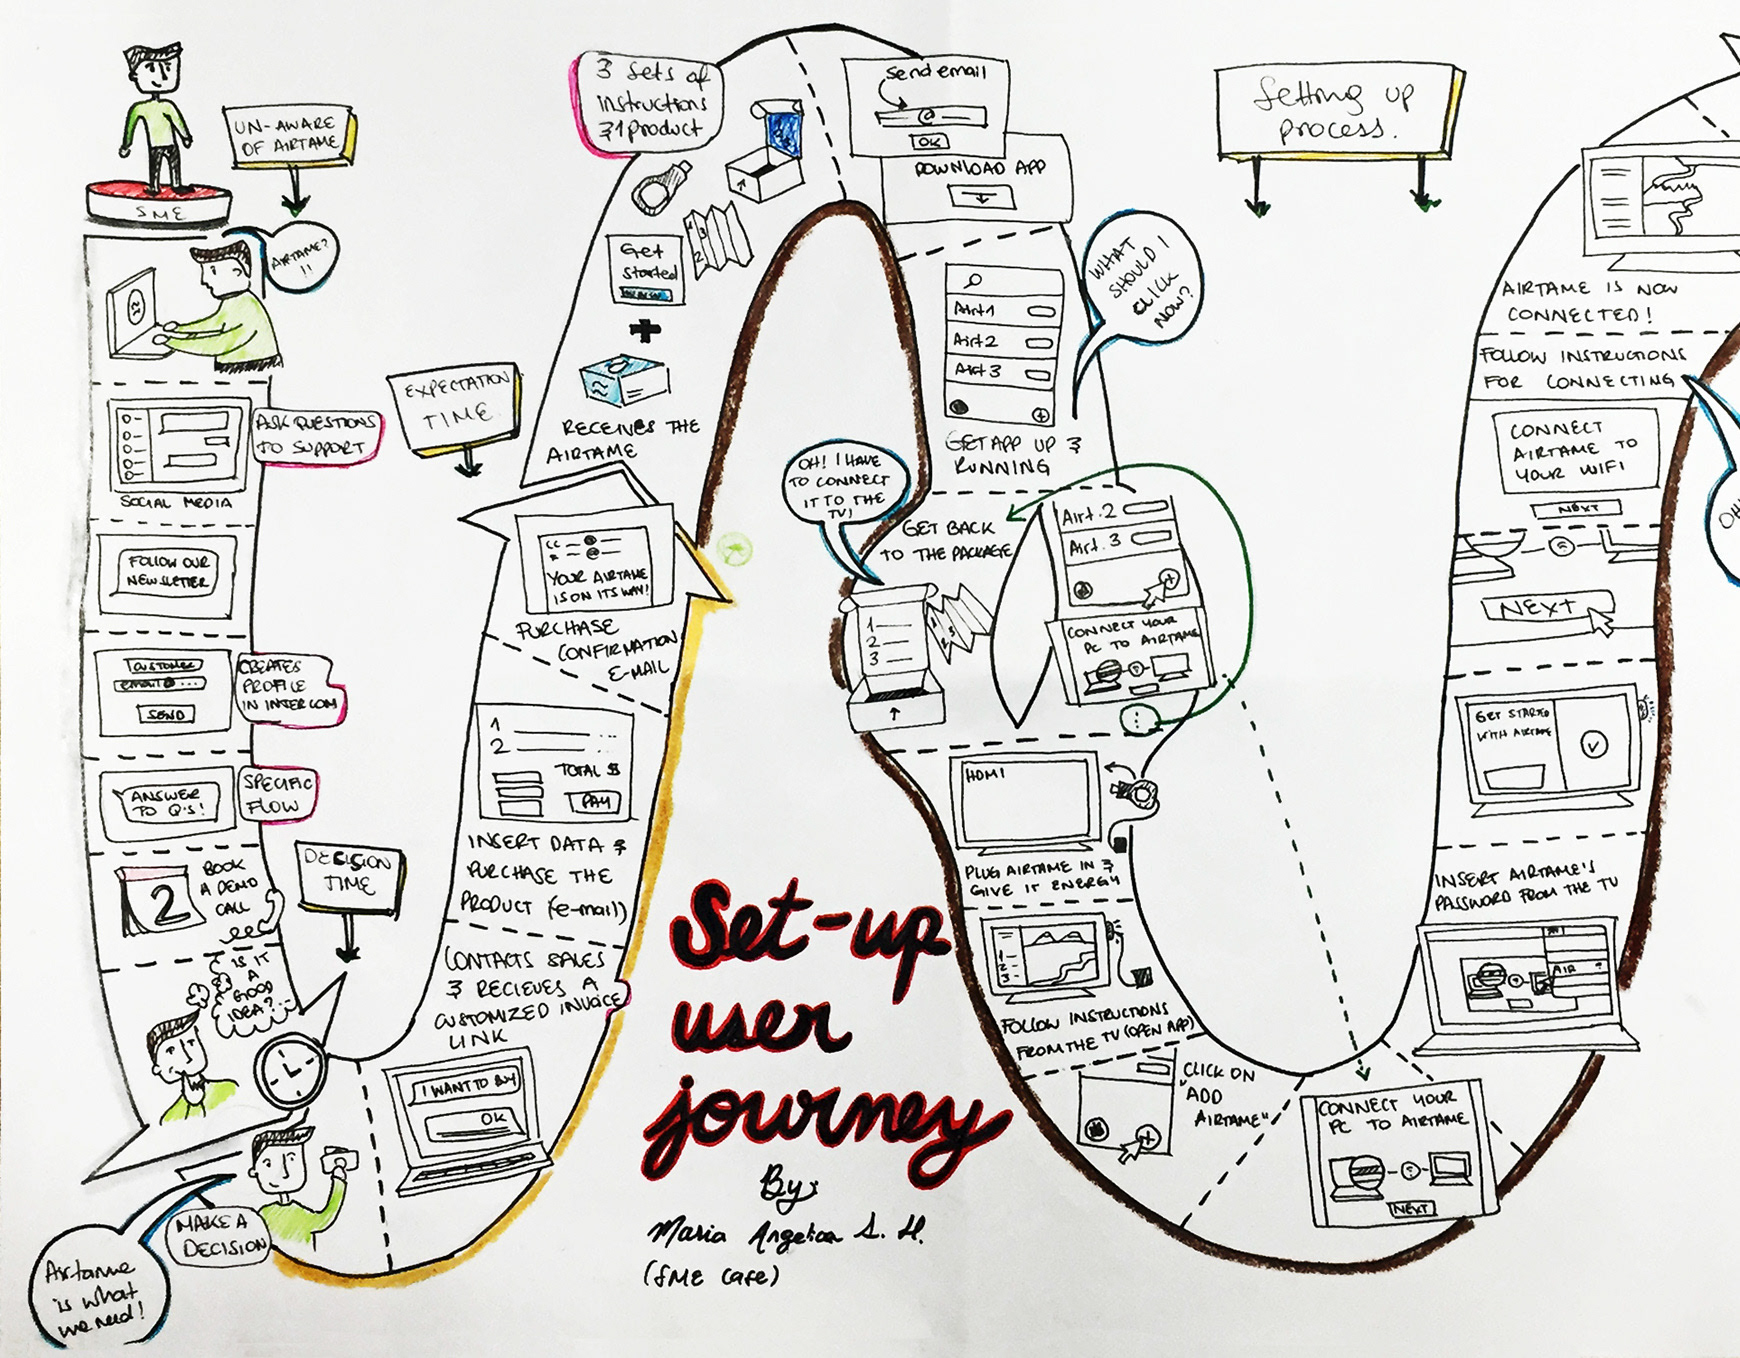 SME
UN-AWARE
OF AIRTAME
AIRTAME?
!!
ASK QUESTIONS
TO SUPPORT
SOCIAL MEDIA
FOLLOW OUR
NEWSLETTER
CUSTOMER
email@...
SEND
CREATES
PROFILE
IN INTERCOM
ANSWER
TO Q'S!
SPECIFIC
FLOW
2
BOOK
A DEMO
CALL
DECISION
TIME
IS IT
A
GOOD
IDEA?
MAKE A
DECISION
Airtame
is what
we need!
I WANT TO BUY
OK
CONTACTS SALES
& RECIEVES A
CUSTOMIZED INVOICE
LINK
1
2
TOTAL $
PAY
INSERT DATA &
PURCHASE THE
PRODUCT (e-mail)
EXPECTATION
TIME
YOUR AIRTAME
IS ON ITS WAY!
PURCHASE
CONFIRMATION
E-MAIL
RECEIVES THE
AIRTAME
Get
started
+
3 sets of
instructions
& 1 product
send email
@
OK
DOWNLOAD APP
WHAT
SHOULD I
CLICK
NOW?
Airt 1
Airt 2
Airt 3
GET APP UP &
RUNNING
OH! I HAVE
TO CONNECT
IT TO THE
TV!
GET BACK
TO THE PACKAGE
1
2
3
Airt. 2
Airt. 3
CONNECT YOUR
PC TO AIRTAME
HDMI
PLUG AIRTAME IN &
GIVE IT ENERGY
1
2
3
FOLLOW INSTRUCTIONS
FROM THE TV (OPEN APP)
CLICK ON
"ADD
AIRTAME"
CONNECT YOUR
PC TO AIRTAME
NEXT
AIR
INSERT AIRTAME'S
PASSWORD FROM THE TV
GET STARTED
WITH AIRTAME
NEXT
CONNECT
AIRTAME TO
YOUR WIFI
NEXT
FOLLOW INSTRUCTIONS
FOR CONNECTING
AIRTAME IS NOW
CONNECTED!
Setting up
process.
Set-up
user
journey
By:
Maria Angelica S. H.
(SME Case)